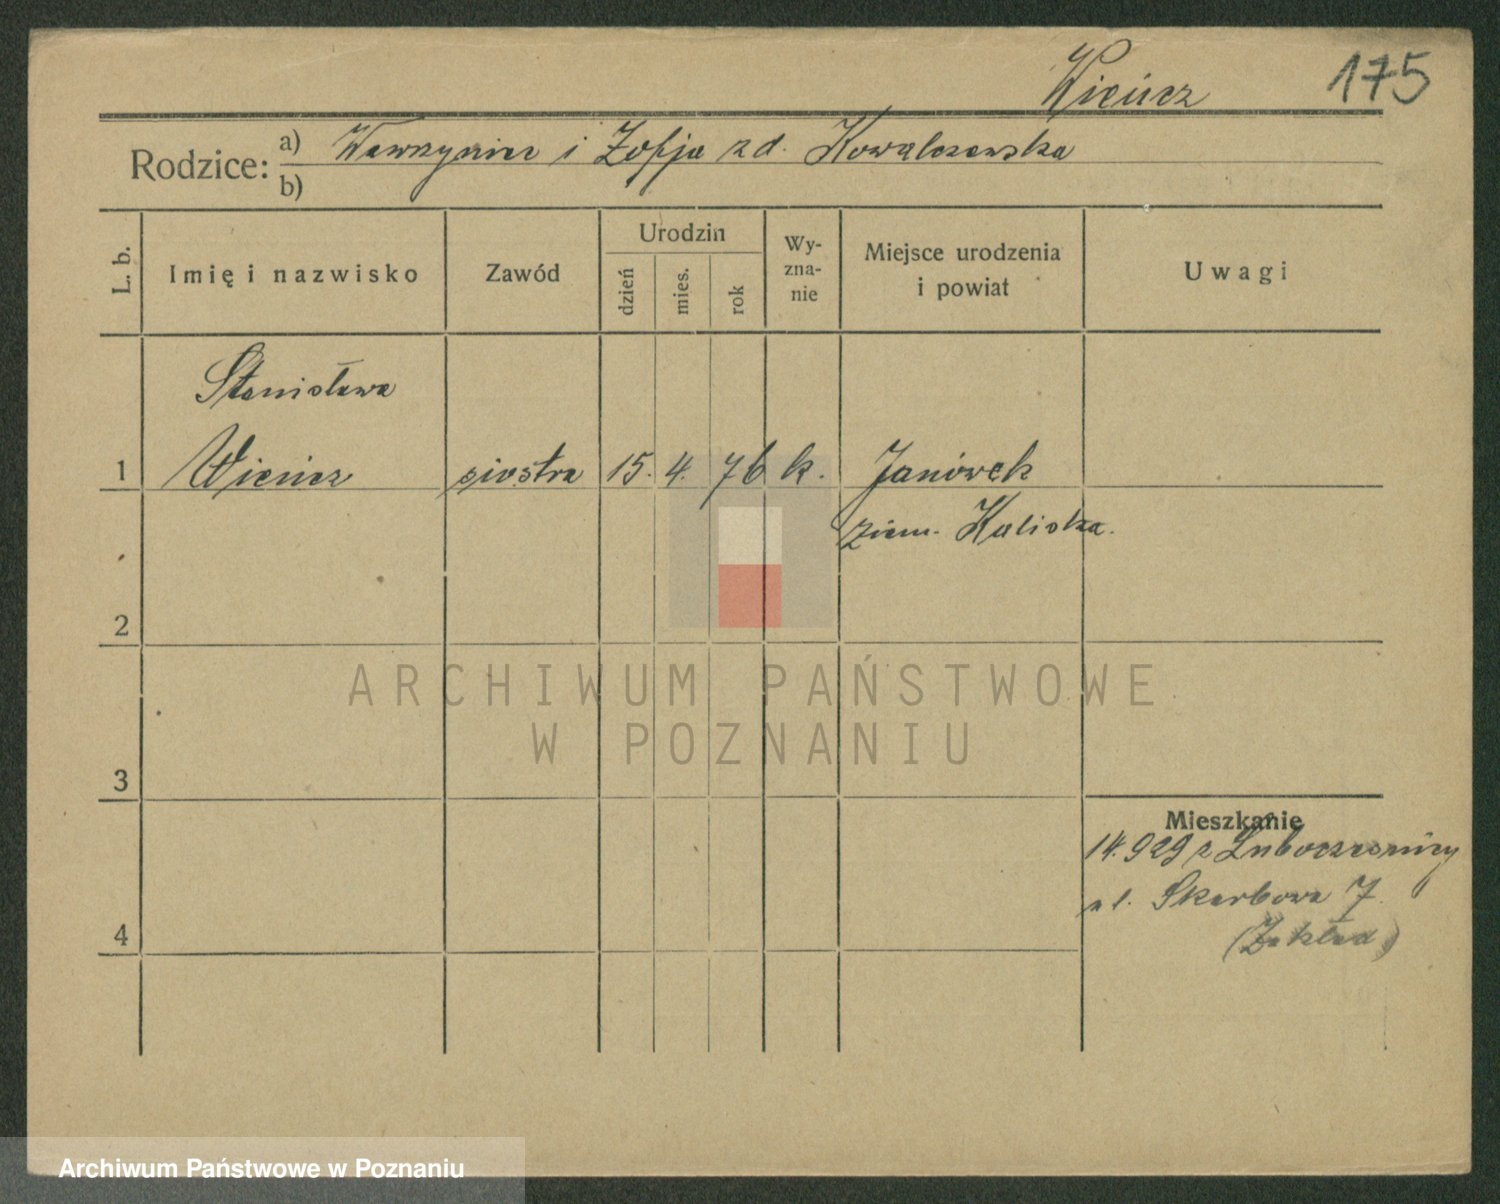 175
Rodzice: a) Wawrzyniec i Zofja zd. Kowalczewska
b)
L. b.
Imię i nazwisko
Zawód
Urodzin
dzień
mies.
rok
Wy-
zna-
nie
Miejsce urodzenia
i powiat
Uwagi
Stanisława
1 siostra 15. 4. 76 k. Janówek
ziem. Kaliska.
2
ARCHIWUM PAŃSTWOWE
W POZNANIU
3
Mieszkanie
14.929 z
ul. Skarbowa 7.
(Zakład)
4
Archiwum Państwowe w Poznaniu